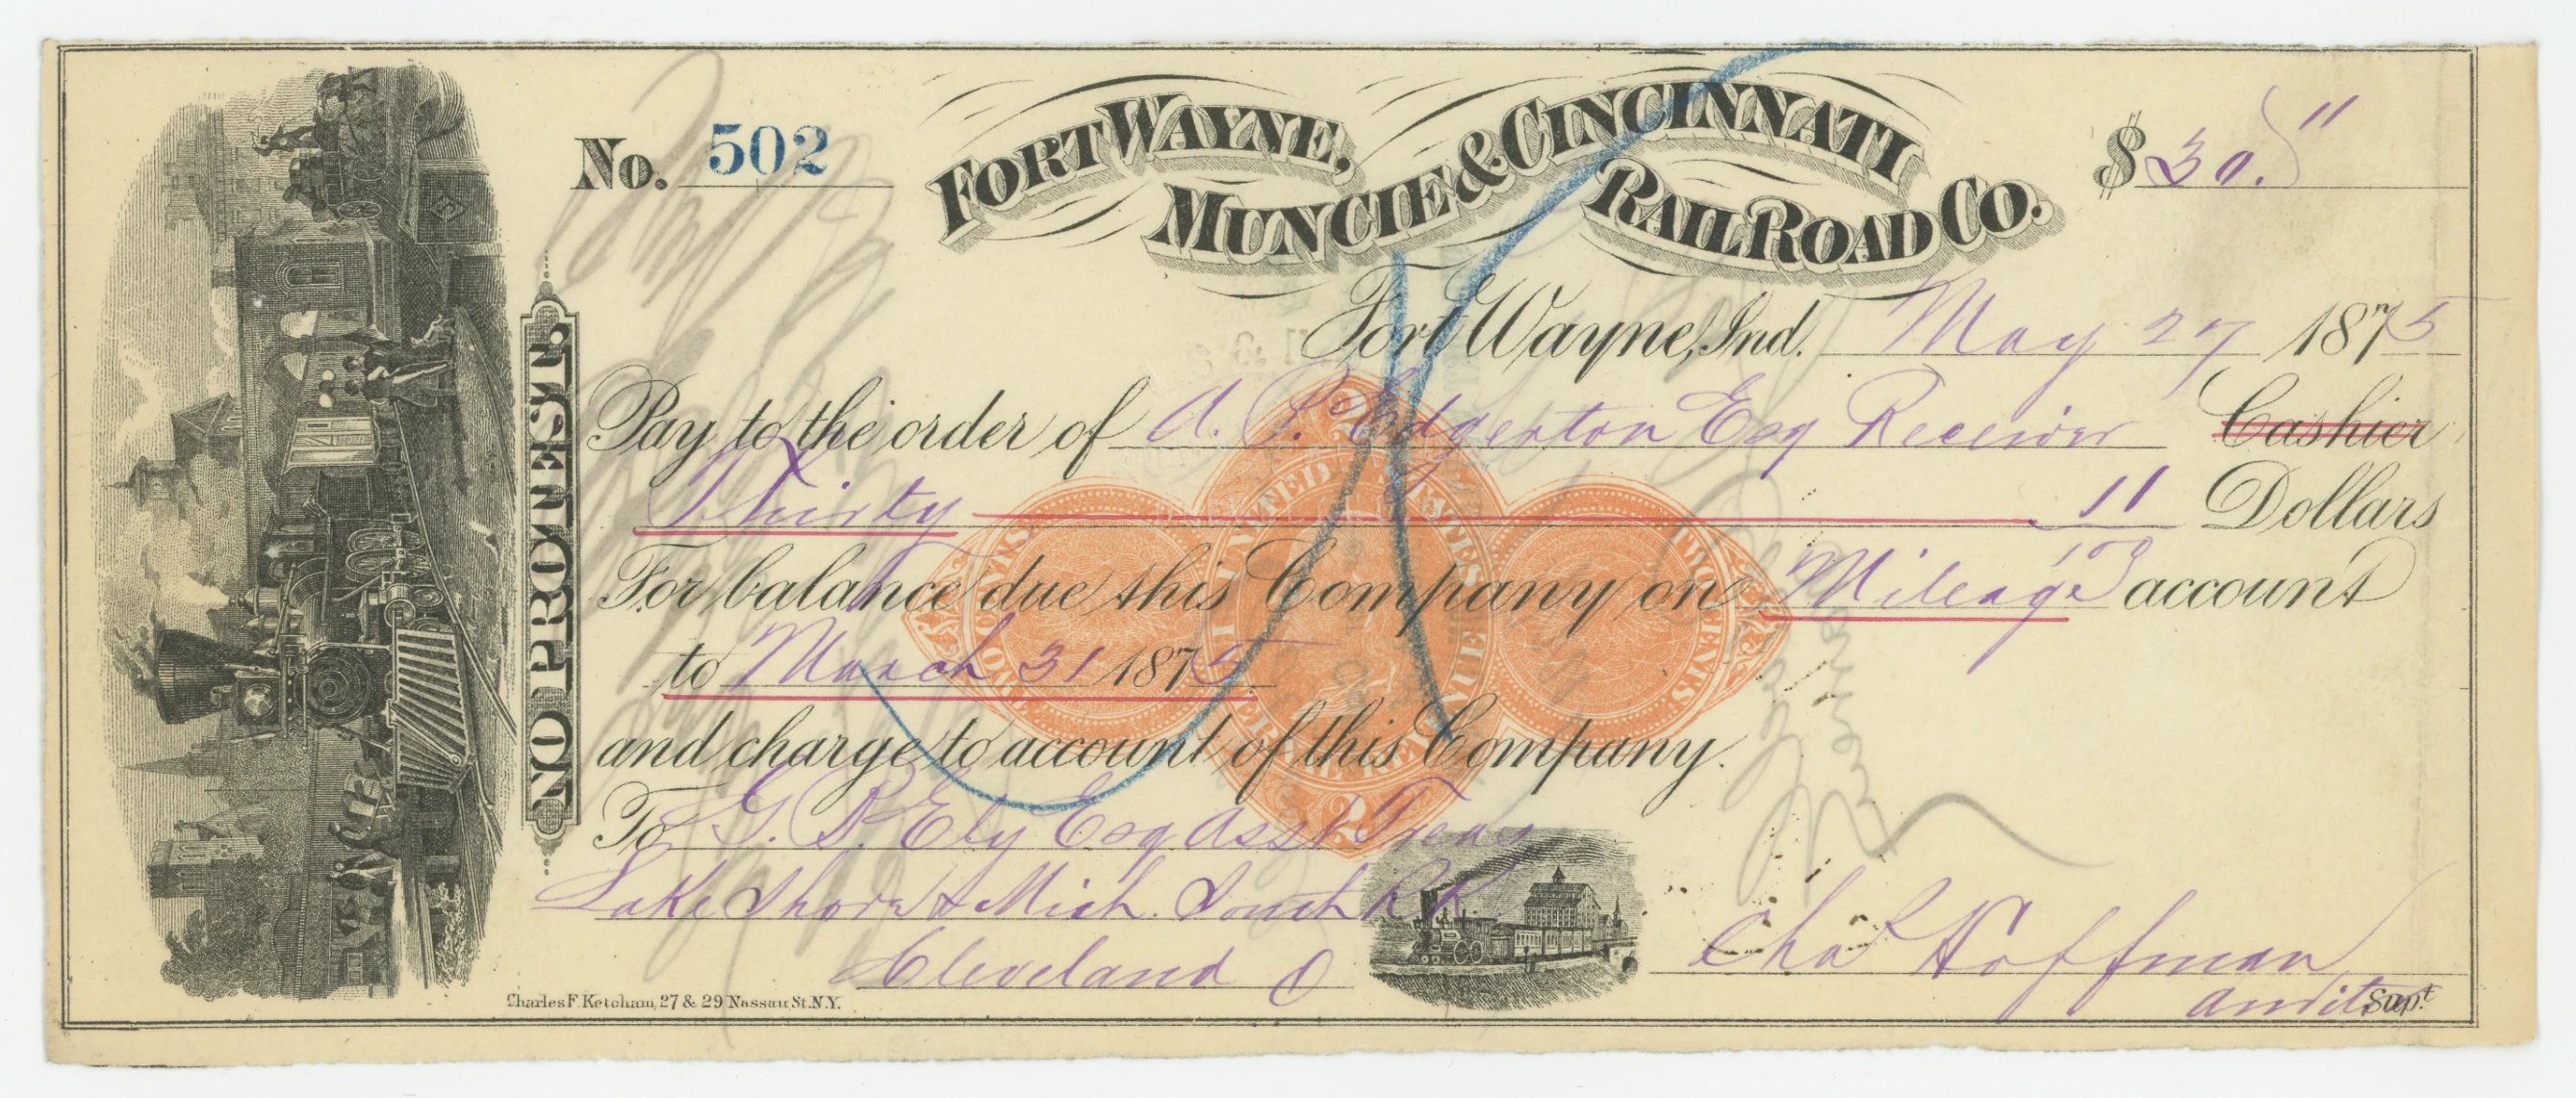 No. 502
FORT WAYNE, MUNCIE & CINCINNATI RAIL ROAD CO.
$30.11
Fort Wayne, Ind. May 27 1875
Pay to the order of A. P. Edgerton Esq Receiver Cashier
Thirty 11/100 Dollars
For balance due this Company on Mileage account
to March 31 1875
and charge to account of this Company.
To G. B. Ely Esq Asst Treas
Lake Shore & Mich. South RR
Cleveland O
Chas Hoffman
Auditor Supt.
NO PROTEST.
UNITED STATES INTERNAL REVENUE
TWO CENTS
TWO CENTS
2
2
Charles F. Ketcham, 27 & 29 Nassau St. N.Y.